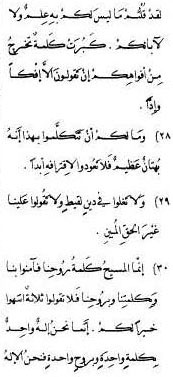 لقد قلتم ما ليس لكم به علم ولا
لآبائكم. كبرت كلمة تخرج
من أفواهكم إن تقولون الا إفكا
وإدّا.
(٢٨) وما لكم أن تتكلموا بهذا إنه
بهتان عظيم فلا تعودوا لاقترافه أبدا.
(٢٩) ولا تغلوا في دين لقيط ولا تقولوا علينا
غير الحق المبين.
(٣٠) إنما المسيح كلمة روحنا فآمنوا بنا
وكلمتنا وبروحنا فلا تقولوا ثلاثة انتهوا
خيرا لكم. إنما نحن إله واحد
بكلمة واحدة وبروح واحدة فنحن الإله